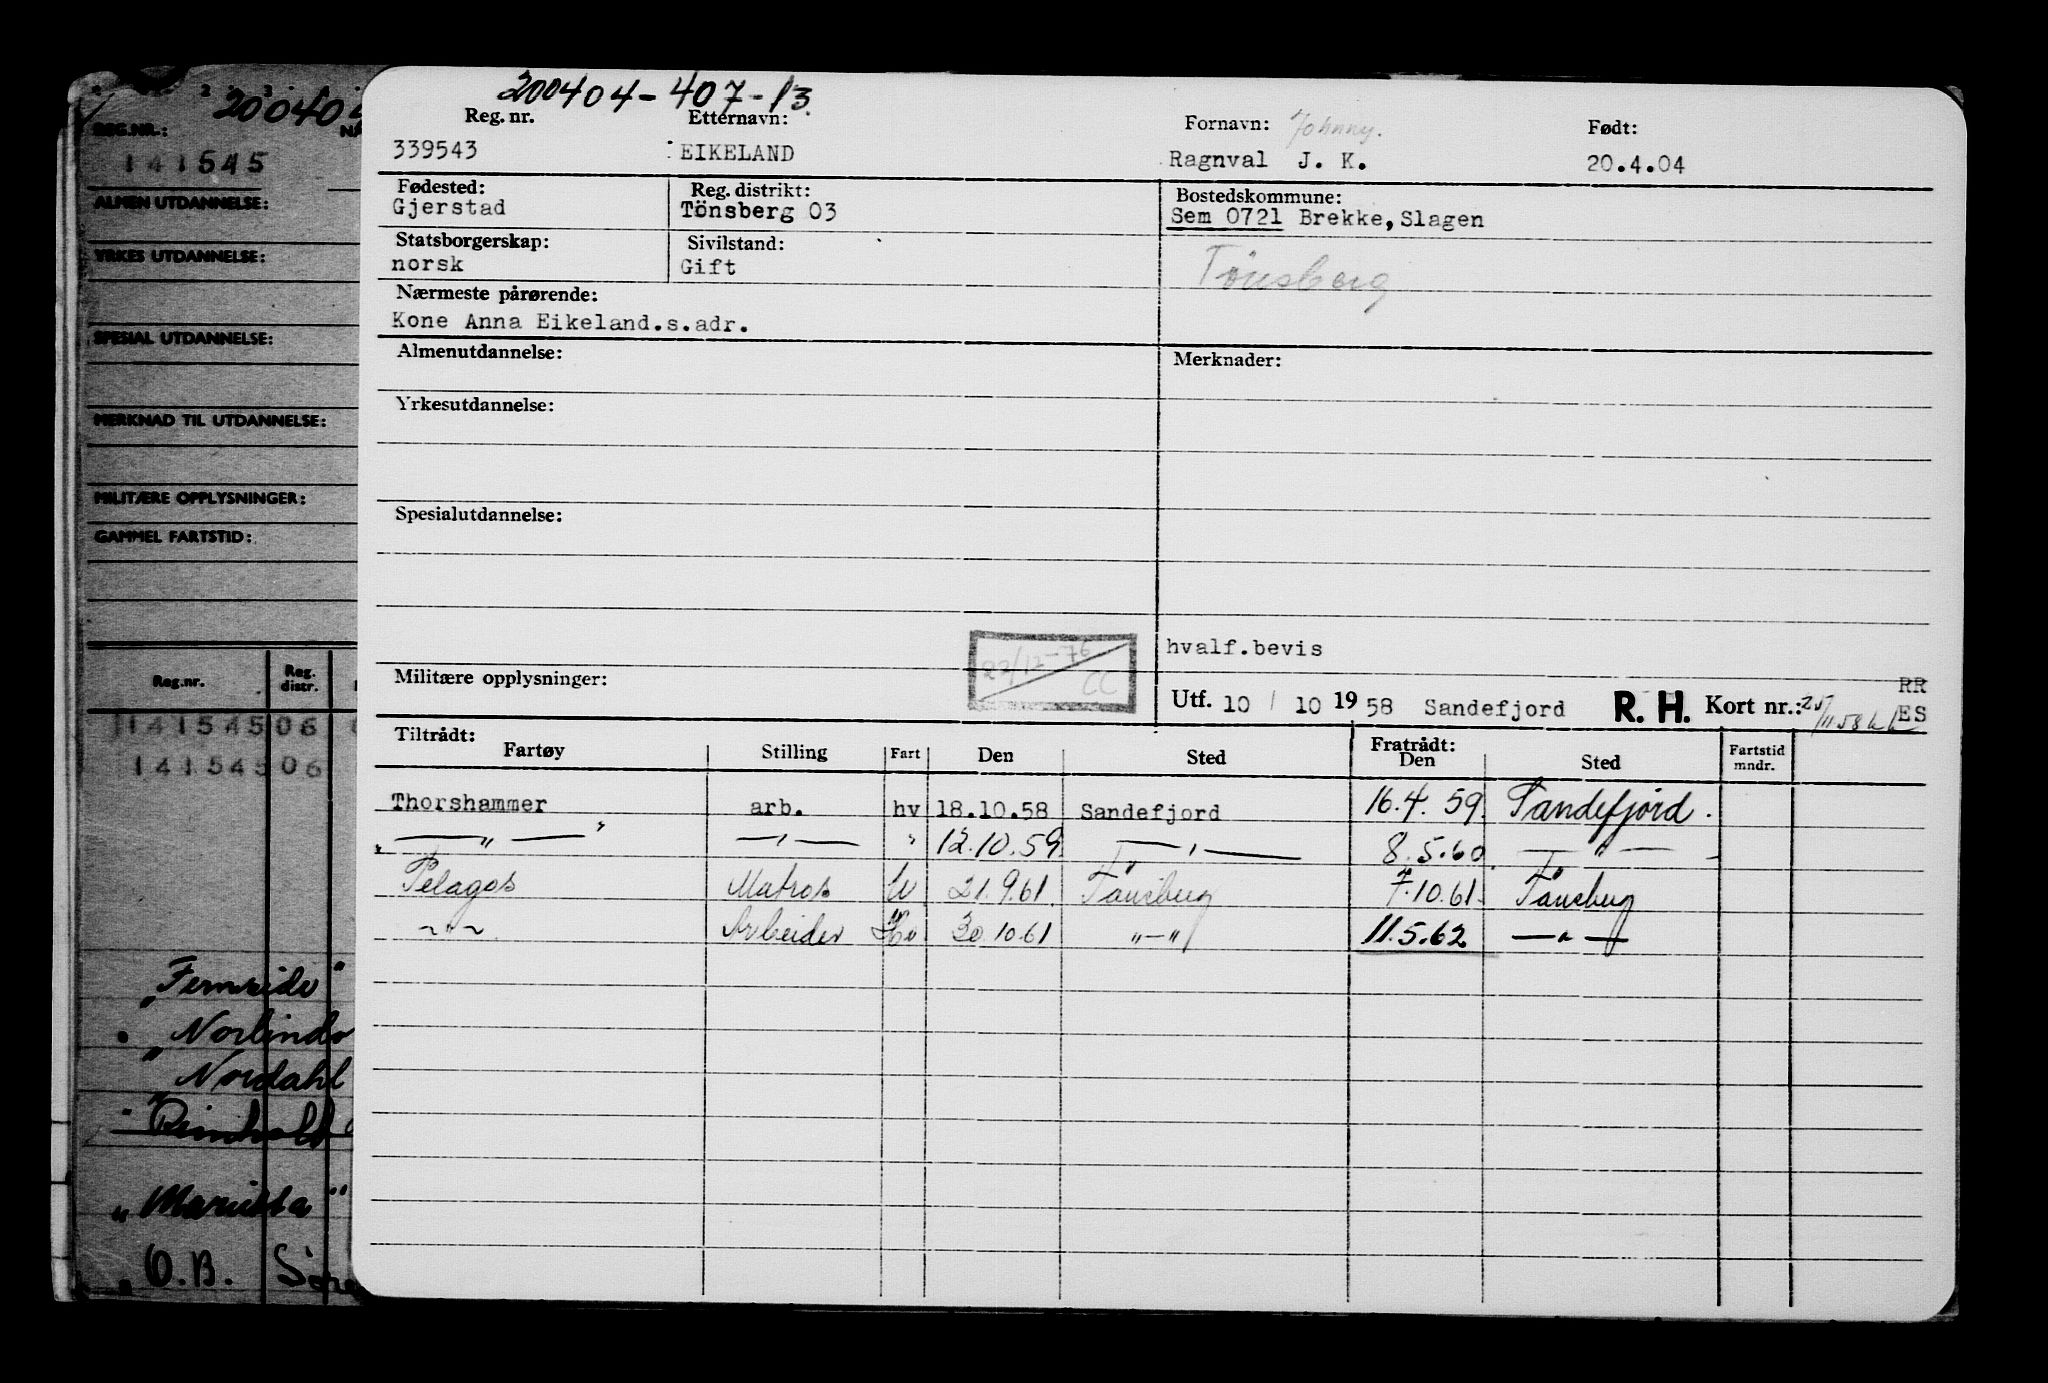 200404-407-13
Reg. nr. Etternavn: Fornavn: Johnny. Født:
339543 EIKELAND Ragnval J. K. 20.4.04
Fødested: Reg. distrikt: Bostedskommune:
Gjerstad Tönsberg 03 Sem 0721 Brekke, Slagen
Statsborgerskap: Sivilstand:
norsk Gift Tønsberg
Nærmeste pårørende:
Kone Anna Eikeland.s.adr.
Almenutdannelse: Merknader:
Yrkesutdannelse:
Spesialutdannelse:
hvalf.bevis
22/12-76
CC
Militære opplysninger:
RR
Utf. 10 / 10 1958 Sandefjord R. H. Kort nr.: ES
Tiltrådt: Fratrådt:
Fartøy Stilling Fart Den Sted Den Sted Fartstid mndr.
Thorshammer arb. hv 18.10.58 Sandefjord 16.4.59. Sandefjord.
—„— —„— " 12.10.59. —„— 8.5.60. —„—
Pelagos Matros 21.9.61. Tönsberg 7.10.61. Tönsberg
~"~ Arbeider Hv 30.10.61 "—" 11.5.62 —"—
2 3
200404
REG.NR.:
141545
ALMEN UTDANNELSE:
YRKES UTDANNELSE:
SPESIAL UTDANNELSE:
MERKNAD TIL UTDANNELSE:
MILITÆRE OPPLYSNINGER:
GAMMEL FARTSTID:
Reg.nr. Reg. distr.
141545 06
141545 06
"Norlinda
"Nordahl
"Marietta"
"O.B.